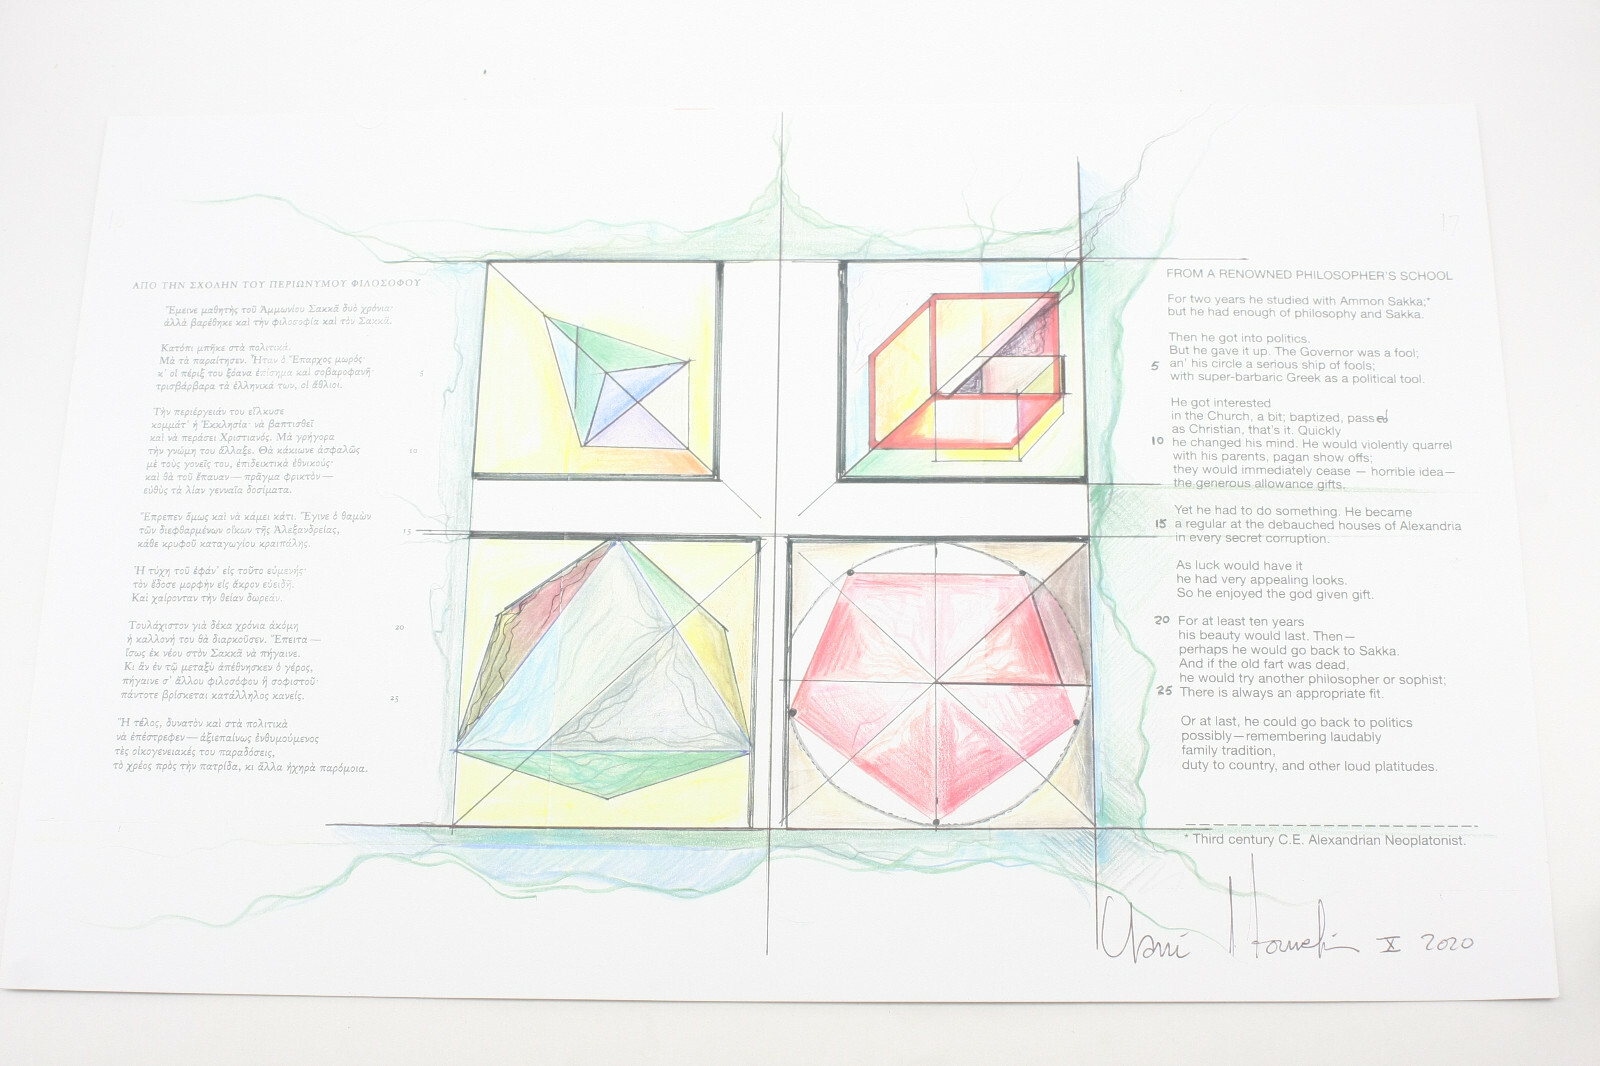 ΑΠΟ ΤΗΝ ΣΧΟΛΗΝ ΤΟΥ ΠΕΡΙΩΝΥΜΟΥ ΦΙΛΟΣΟΦΟΥ
Ἔμεινε μαθητὴς τοῦ Ἀμμωνίου Σακκᾶ δυὸ χρόνια·
ἀλλὰ βαρέθηκε καὶ τὴν φιλοσοφία καὶ τὸν Σακκᾶ.
Κατόπι μπῆκε στὰ πολιτικά.
Μὰ τὰ παραίτησεν. Ἦταν ὁ Ἔπαρχος μωρός·
κ' οἱ πέριξ του ξόανα ἐπίσημα καὶ σοβαροφανῆ· 5
τρισβάρβαρα τὰ ἑλληνικά των, οἱ ἄθλιοι.
Τὴν περιέργειάν του εἵλκυσε
κομμάτ' ἡ Ἐκκλησία· νὰ βαπτισθεῖ
καὶ νὰ περάσει Χριστιανός. Μὰ γρήγορα
τὴν γνώμη του ἄλλαξε. Θὰ κάκιωνε ἀσφαλῶς 10
μὲ τοὺς γονεῖς του, ἐπιδεικτικὰ ἐθνικούς·
καὶ θὰ τοῦ ἔπαυαν — πρᾶγμα φρικτόν —
εὐθὺς τὰ λίαν γενναῖα δοσίματα.
Ἔπρεπεν ὅμως καὶ νὰ κάμει κάτι. Ἔγινε ὁ θαμὼν
τῶν διεφθαρμένων οἴκων τῆς Ἀλεξανδρείας, 15
κάθε κρυφοῦ καταγωγίου κραιπάλης.
Ἡ τύχη τοῦ ἐφάν' εἰς τοῦτο εὐμενής·
τὸν ἔδοσε μορφὴν εἰς ἄκρον εὐειδῆ.
Καὶ χαίρονταν τὴν θείαν δωρεάν.
Τουλάχιστον γιὰ δέκα χρόνια ἀκόμη 20
ἡ καλλονή του θὰ διαρκοῦσεν. Ἔπειτα —
ἴσως ἐκ νέου στὸν Σακκᾶ νὰ πήγαινε.
Κι ἂν ἐν τῷ μεταξὺ ἀπέθνησκεν ὁ γέρος,
πήγαινε σ' ἄλλου φιλοσόφου ἢ σοφιστοῦ·
πάντοτε βρίσκεται κατάλληλος κανείς. 25
Ἢ τέλος, δυνατὸν καὶ στὰ πολιτικὰ
νὰ ἐπέστρεφεν — ἀξιεπαίνως ἐνθυμούμενος
τὲς οἰκογενειακές του παραδόσεις,
τὸ χρέος πρὸς τὴν πατρίδα, κι ἄλλα ἠχηρὰ παρόμοια.
FROM A RENOWNED PHILOSOPHER'S SCHOOL
For two years he studied with Ammon Sakka;*
but he had enough of philosophy and Sakka.
Then he got into politics.
But he gave it up. The Governor was a fool;
5 an' his circle a serious ship of fools;
with super-barbaric Greek as a political tool.
He got interested
in the Church, a bit; baptized, passed
as Christian, that's it. Quickly
10 he changed his mind. He would violently quarrel
with his parents, pagan show offs;
they would immediately cease — horrible idea—
the generous allowance gifts.
Yet he had to do something. He became
15 a regular at the debauched houses of Alexandria
in every secret corruption.
As luck would have it
he had very appealing looks.
So he enjoyed the god given gift.
20 For at least ten years
his beauty would last. Then—
perhaps he would go back to Sakka.
And if the old fart was dead,
he would try another philosopher or sophist;
25 There is always an appropriate fit.
Or at last, he could go back to politics
possibly—remembering laudably
family tradition,
duty to country, and other loud platitudes.
* Third century C.E. Alexandrian Neoplatonist.
X 2020